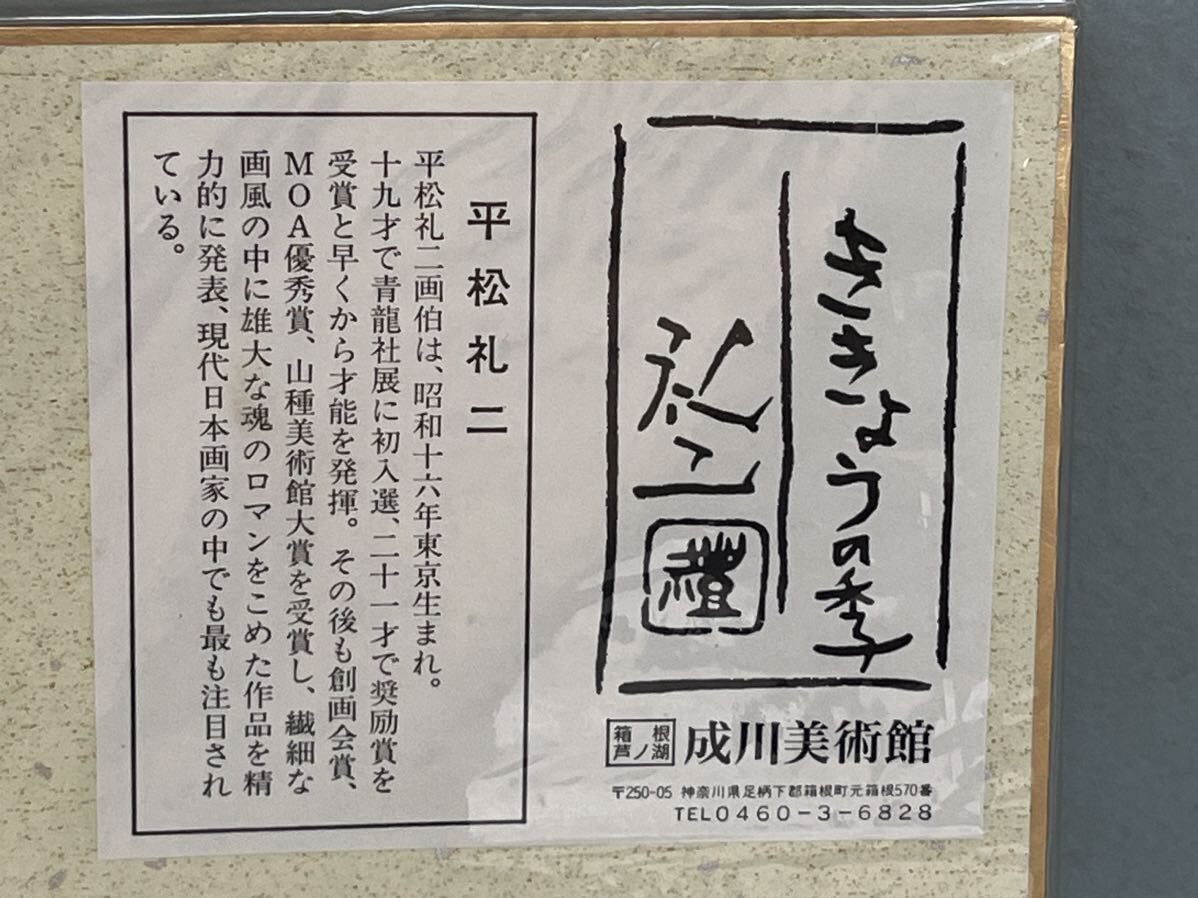 ききょうの季
礼二
禮
箱根
芦ノ湖
成川美術館
〒250-05 神奈川県足柄下郡箱根町元箱根570番
TEL0460-3-6828
平松礼二
平松礼二画伯は、昭和十六年東京生まれ。
十九才で青龍社展に初入選、二十一才で奨励賞を
受賞と早くから才能を発揮。その後も創画会賞、
MOA優秀賞、山種美術館大賞を受賞し、繊細な
画風の中に雄大な魂のロマンをこめた作品を精
力的に発表、現代日本画家の中でも最も注目され
ている。